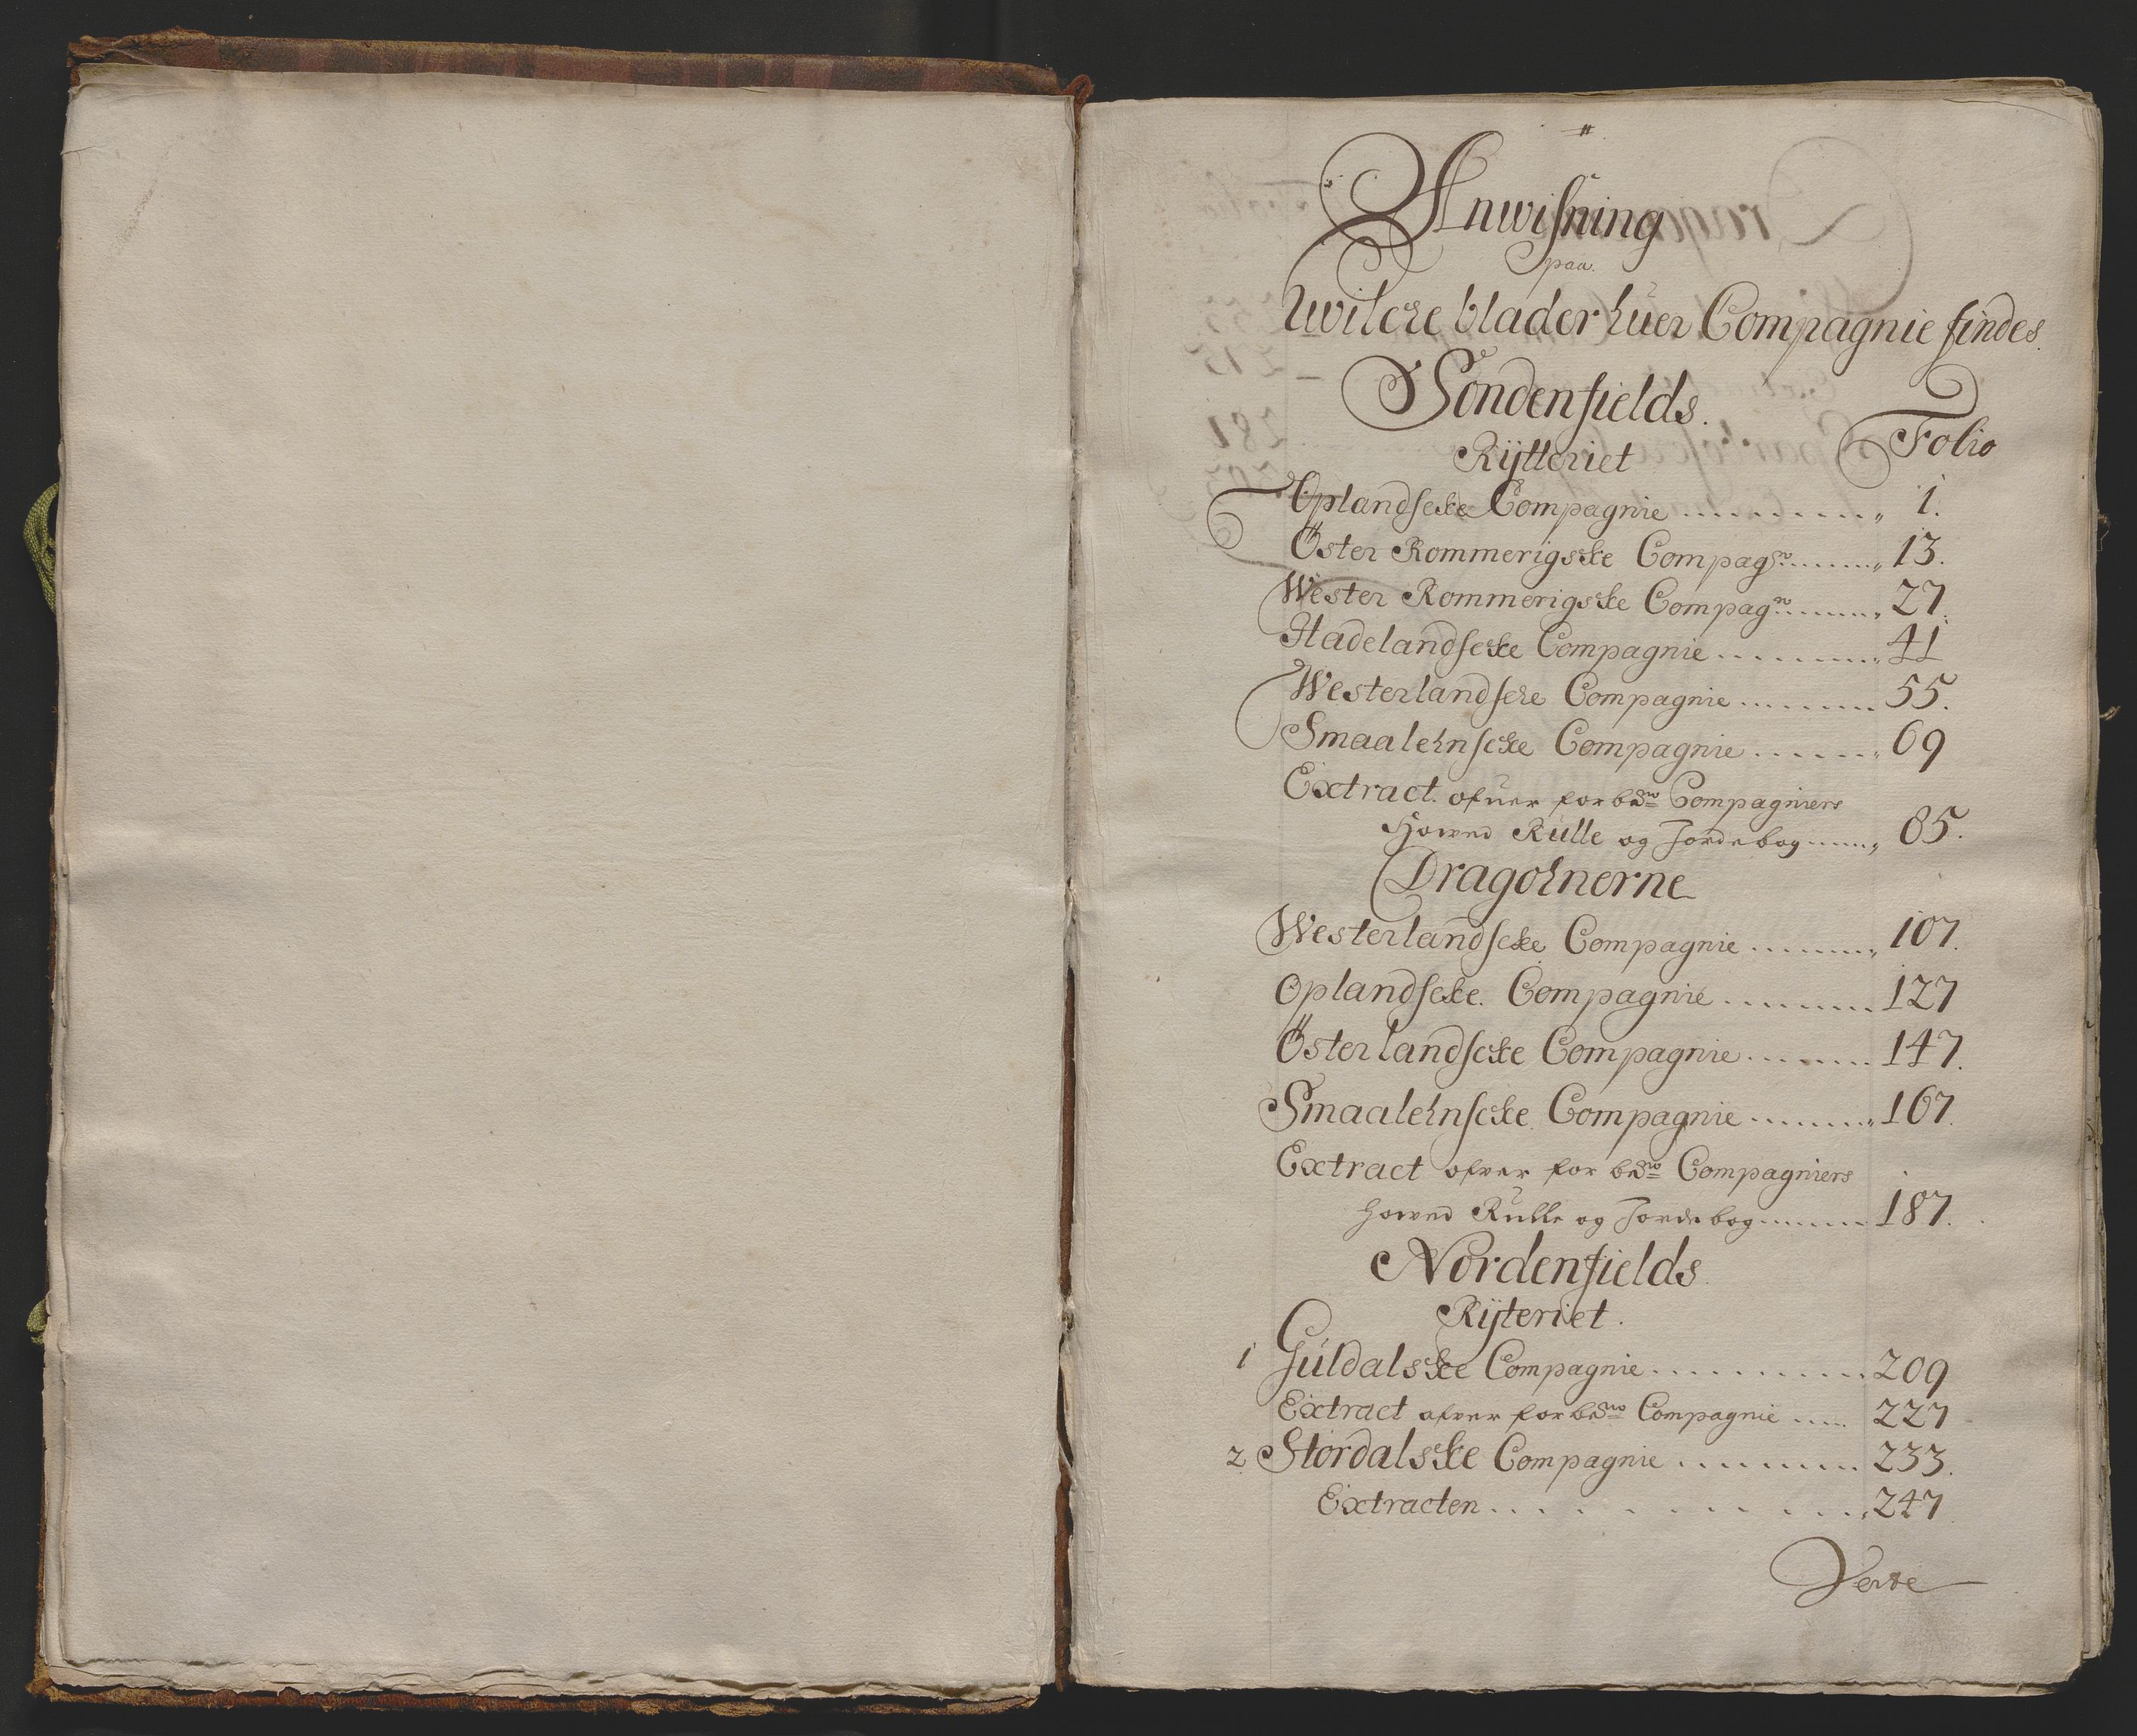 Anwisning
paa
hwilcke blader huer Compagnie findes.
Söndenfields.
Folio
Rÿtteriet
Oplandscke Compagnie .......... 1.
Öster Rommerigske Compagn ........ 13.
Wester Rommerigske Compagn ........ 27.
Hadelandscke Compagnie ......... 41
Westerlandscke Compagnie ........ 55.
Smaalehnscke Compagnie ....... 69
Extract ofuer forbemte Compagniers
Howed Rulle og Jordebog ...... 85.
Dragohnerne
Westerlandscke Compagnie ........ 107.
Oplandscke Compagnie ........ 127
Österlandscke Compagnie ........ 147.
Smaalehnscke Compagnie ........ 167.
Extract ofver for bemte Compagniers
howed Rulle og Jordebog ....... 187.
Nordenfields.
Rÿteriet.
1 Guldalske Compagnie ........... 209
Extract ofver forbemte Compagnie ..... 227
2 Stördalske Compagnie ......... 233.
Extracten ......... 247
Verte